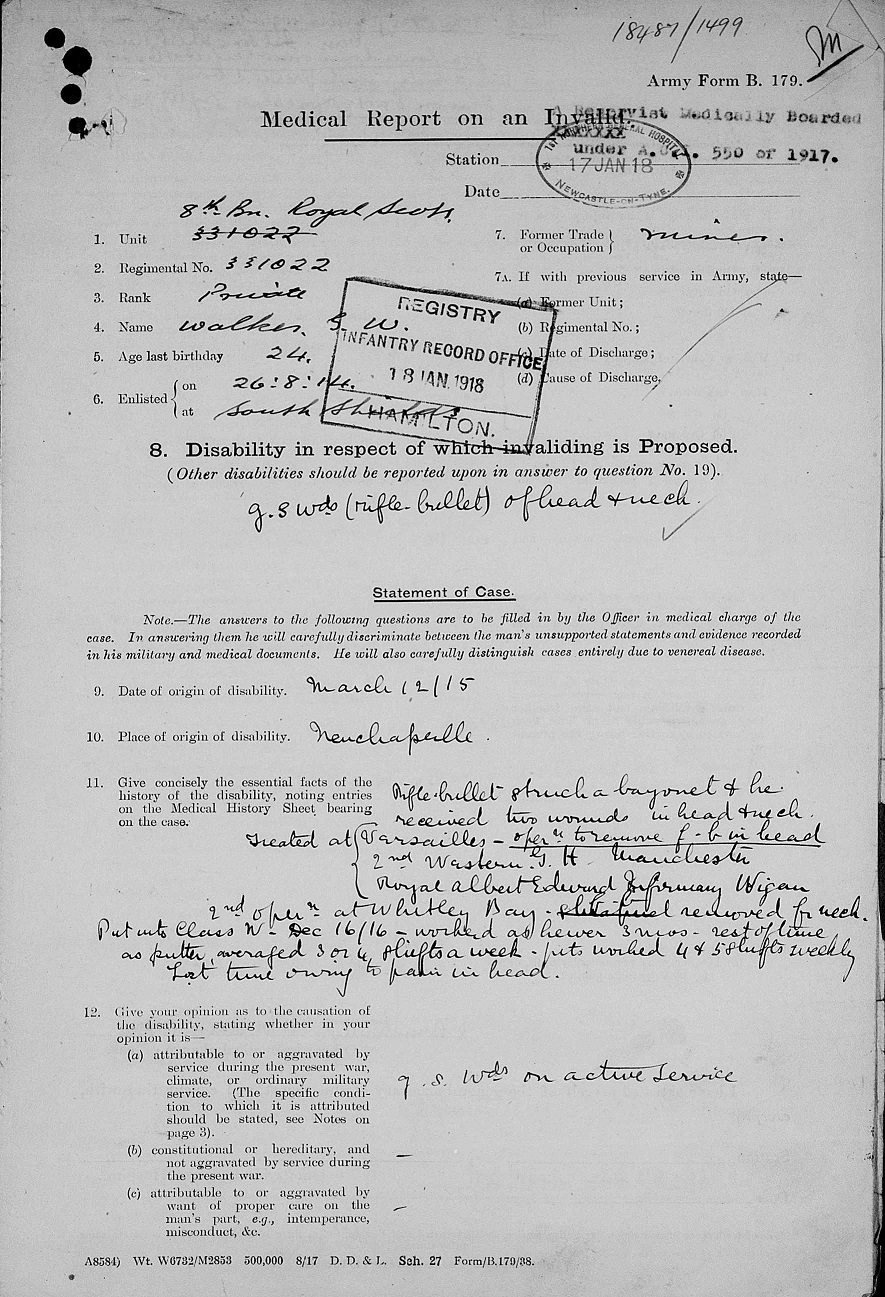 18487/1499
M
Army Form B. 179.
Medical Report on an Invalid.
A Reservist Medically Boarded
under A.C.I. 550 of 1917.
Station
1ST NORTHERN GENERAL HOSPITAL
17 JAN 18
NEWCASTLE-ON-TYNE.
Date
8th Bn. Royal Scots
1. Unit 331022
2. Regimental No. 331022
3. Rank Private
4. Name Walker. G. W.
5. Age last birthday 24.
6. Enlisted { on 26:8:14.
at South Shields
7. Former Trade or Occupation } Miner.
7A. If with previous service in Army, state—
(a) Former Unit;
(b) Regimental No.;
(c) Date of Discharge;
(d) Cause of Discharge.
REGISTRY
INFANTRY RECORD OFFICE
18 JAN. 1918
HAMILTON.
8. Disability in respect of which invaliding is Proposed.
(Other disabilities should be reported upon in answer to question No. 19).
g. s wds (rifle-bullet) of head & neck.
Statement of Case.
Note.—The answers to the following questions are to be filled in by the Officer in medical charge of the
case. In answering them he will carefully discriminate between the man's unsupported statements and evidence recorded
in his military and medical documents. He will also carefully distinguish cases entirely due to venereal disease.
9. Date of origin of disability. March 12/15
10. Place of origin of disability. Neuchapelle.
11. Give concisely the essential facts of the
history of the disability, noting entries
on the Medical History Sheet bearing
on the case.
Rifle-bullet struck a bayonet & he
received two wounds in head & neck.
Treated at { Versailles - opern to remove f-b in head
2nd Western G. H. Manchester
Royal Albert Edward Infirmary Wigan
2nd opern at Whitley Bay - removed fr neck.
Put into Class W - Dec 16/16 - worked as hewer 3 mos - rest of time
as putter, averaged 3 or 4 shifts a week - puts worked 4 & 5 shifts weekly
Lost time owing to pain in head.
12. Give your opinion as to the causation of
the disability, stating whether in your
opinion it is—
(a) attributable to or aggravated by
service during the present war,
climate, or ordinary military
service. (The specific condi-
tion to which it is attributed
should be stated, see Notes on
page 3).
g. s. wds on active service
(b) constitutional or hereditary, and
not aggravated by service during
the present war.
—
(c) attributable to or aggravated by
want of proper care on the
man's part, e.g., intemperance,
misconduct, &c.
—
A8584) Wt. W6732/M2853 500,000 8/17 D. D. & L. Sch. 27 Form/B.179/38.